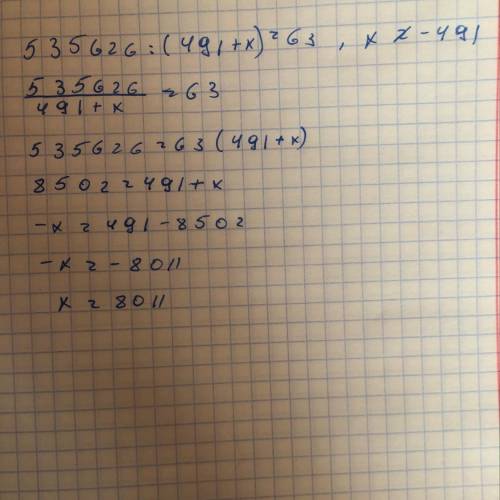 535626 : (491+x) = 63 , x ≠ -491
535626/491+x = 63
535626 = 63(491+x)
8502 = 491+x
-x = 491-8502
-x = -8011
x = 8011